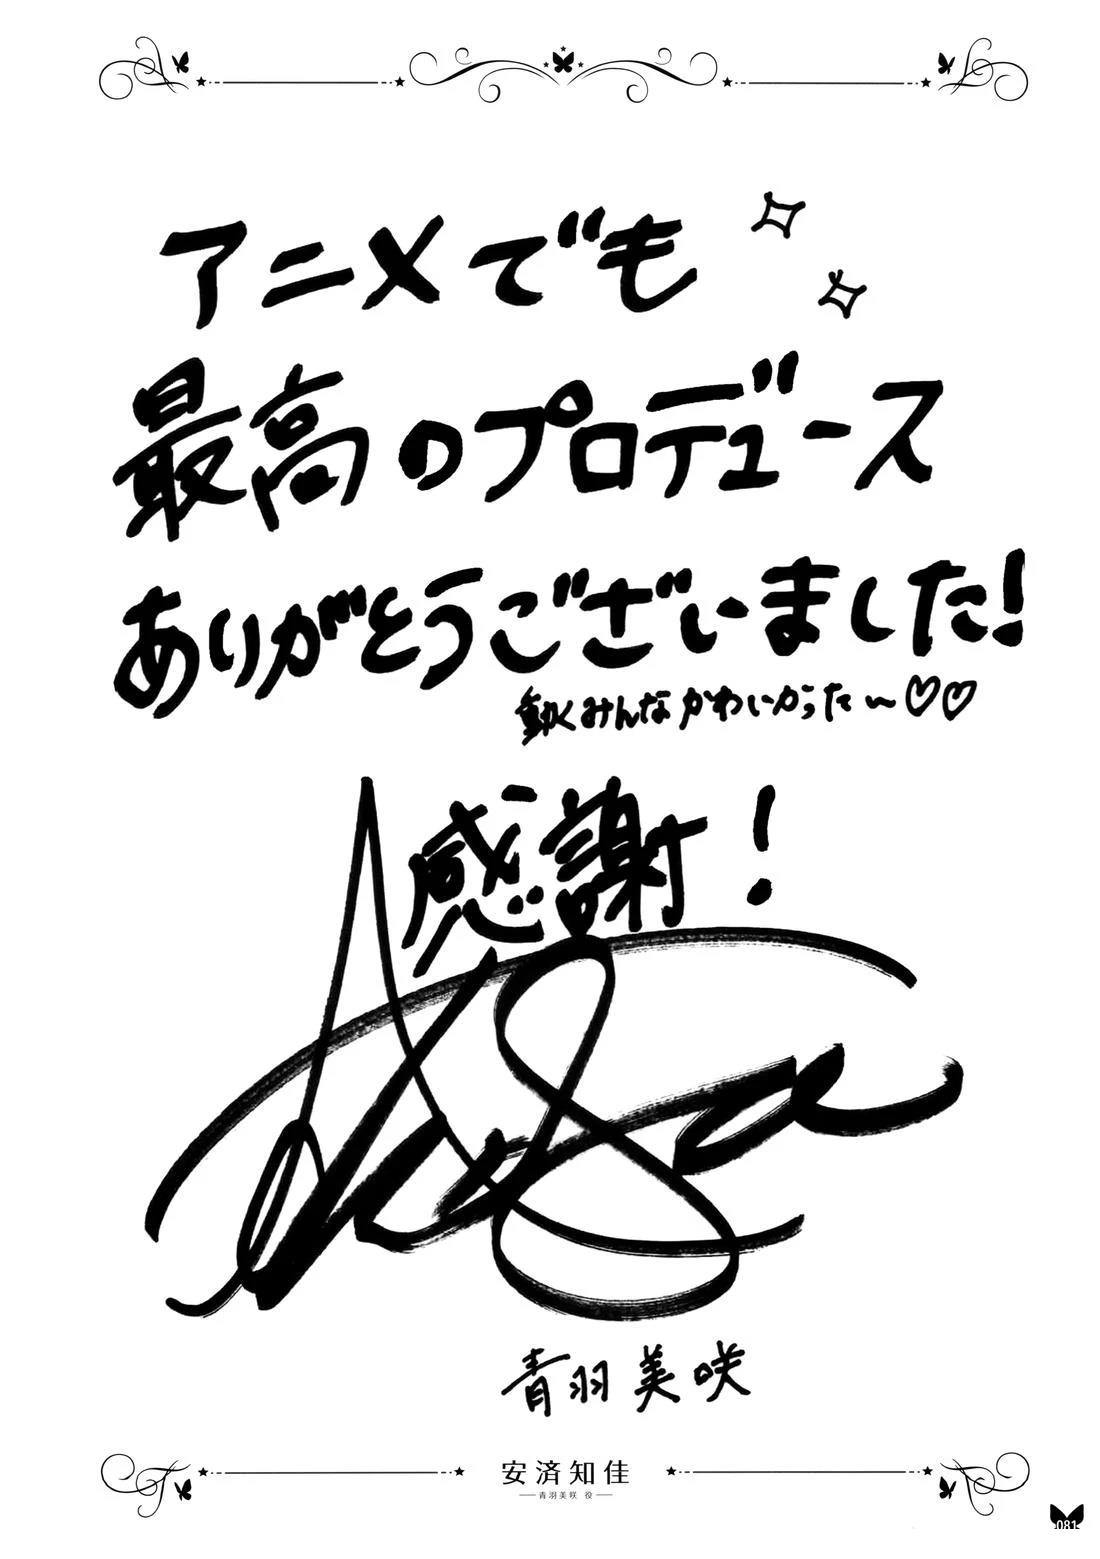 アニメでも
最高のプロデュース
ありがとうございました!
動くみんなかわいかった〜♡♡
感謝!
青羽美咲
安済知佳
青羽美咲 役
081